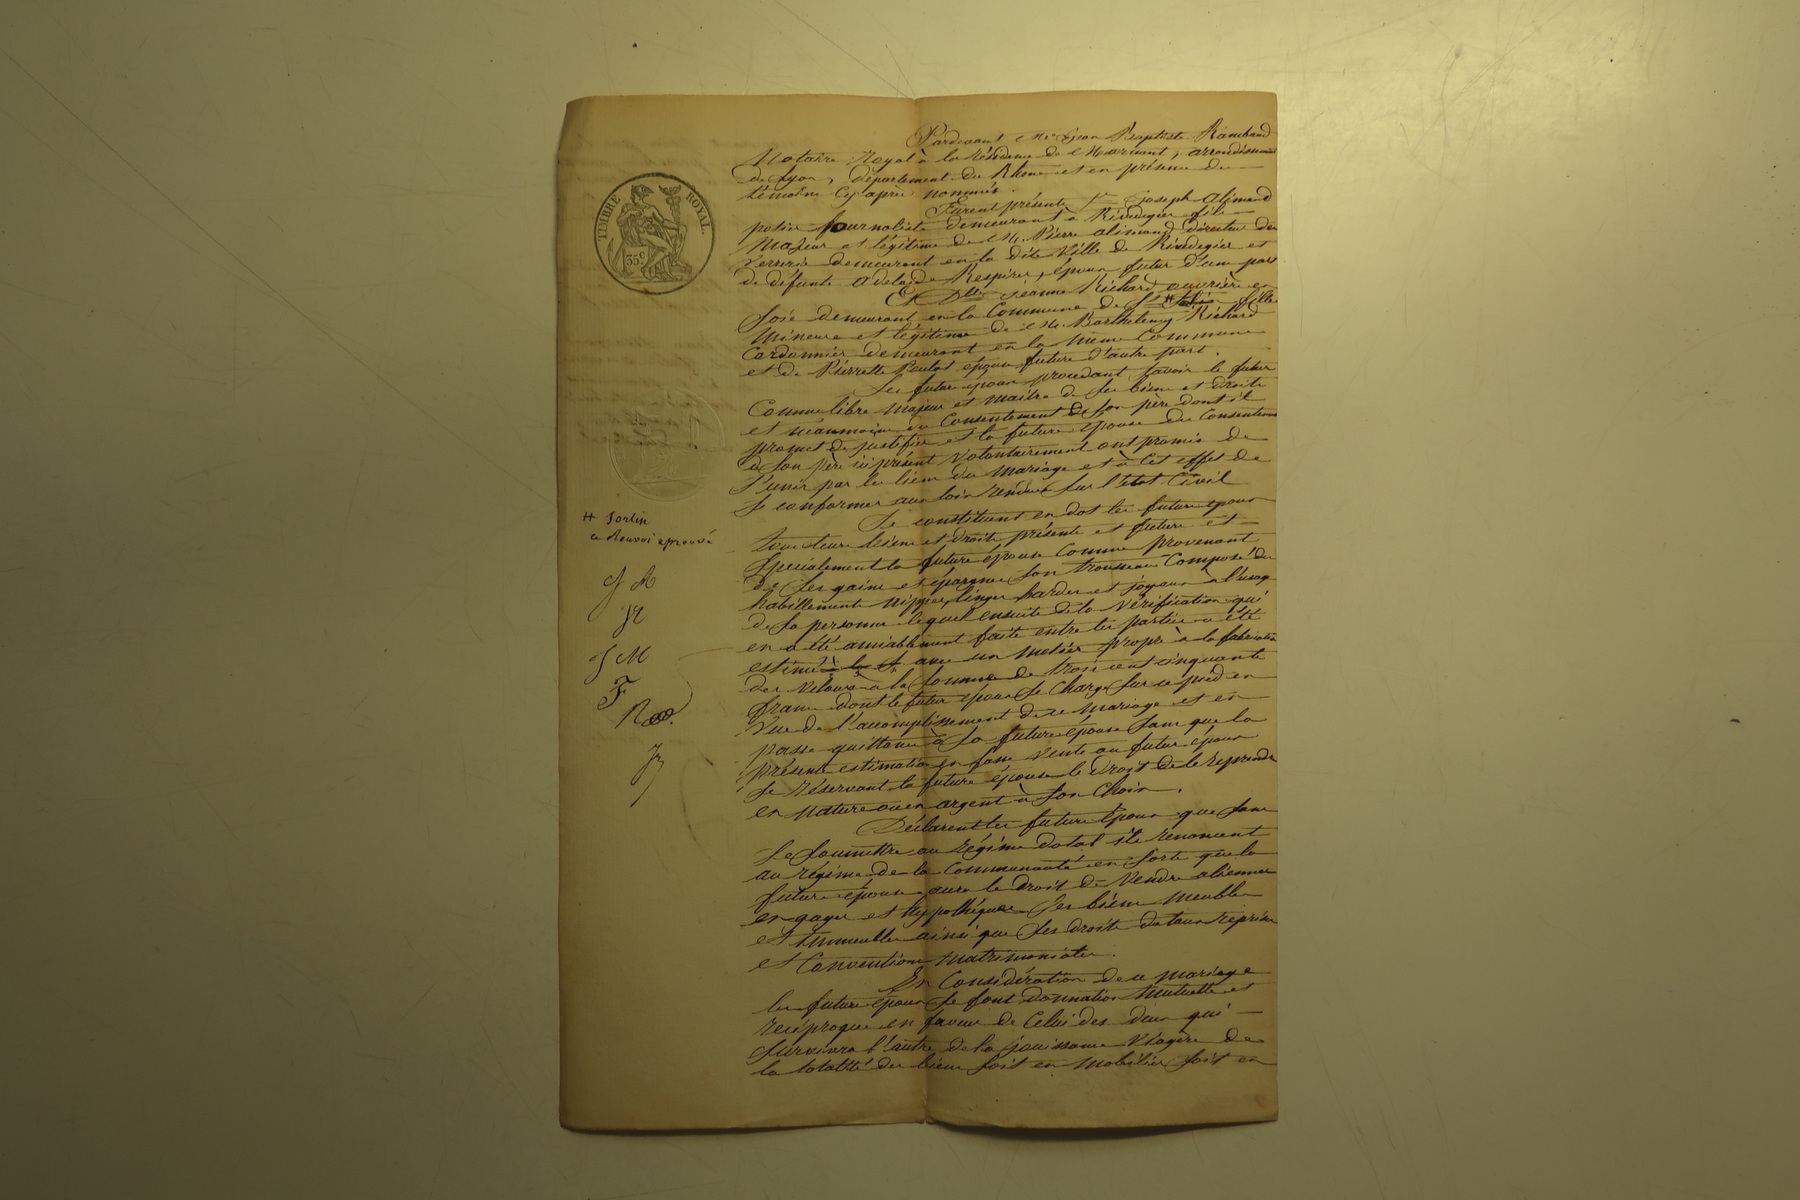 TIMBRE ROYAL.
35 c
Pardevant Me Jean Baptiste Rambaud
Notaire Royal à la résidence de Mornant, arrondissement
de Lyon, département du Rhône et en présence des
témoins cy après nommés.
Furent présents Sr Joseph Alimand
potier fournaliste demeurant à Rivedegier fils
Majeur et légitime de M. Pierre alimand Directeur des
Verrerie demeurant en la dite Ville de Rivedegier et
de défunte Adelaide Respirer, époux futur d'une part
Et Dlle Jeanne Richard ouvrière en
Soie demeurant en la Commune de St # fille
Mineure et légitime de M. Barthelemy Richard
Cordonnier demeurant en la même Commune
et de Pierrette Poulat épouse future d'autre part.
Les futurs époux procédant Savoir le futur
Comme libre majeur et maitre de ses biens et droits
et néanmoins du Consentement de Son père dont il
promet de justifier et la future épouse du Consentement
de Son père ici présent Volontairement ont promis de
S'unir par les liens du Mariage et à cet effet de
Se conformer aux loix rendues Sur l'état Civil
Se constituent en dot les futurs époux
tous leurs biens et droits présents et futurs et
Spécialement la future épouse Comme provenant
de Ses gains et épargnes Son trousseau Composé de
habillements nippes, linges, hardes et joyaux à l'usage
de Sa personne lequel ensuite de la Vérification qui
en a été amiablement faite entre les parties a été
estimé avec un métier propre à la fabrication
des Velours à la Somme de trois cent cinquante
francs dont le futur époux Se Charge Sur ce pied en
Vue de l'accomplissement de ce Mariage et en
passe quittance à Sa future épouse Sans que la
présente estimation en fasse Vente au futur époux
Se réservant la future épouse le Droit de le reprendre
en Nature ou en argent à Son Choix.
Déclarent les futurs époux que Sans
Se Soumettre au régime dotal ils renoncent
au régime de la Communauté en Sorte que la
future épouse aura le Droit de Vendre aliéner
engager et hypothéquer Ses biens Meubles
et Immeubles ainsi que Ses droits dotaux reprises
et Conventions Matrimoniales.
En Considération de ce Mariage
les futurs époux Se font donnation Mutuelle et
reciproque en faveur de Celui des deux qui
Survivra l'autre de la jouissance Viagère de
la totalité des biens Soit en Mobilier Soit en
# Sorlin
ce Renvoi aprouvé
J R
JR
J M
F
R